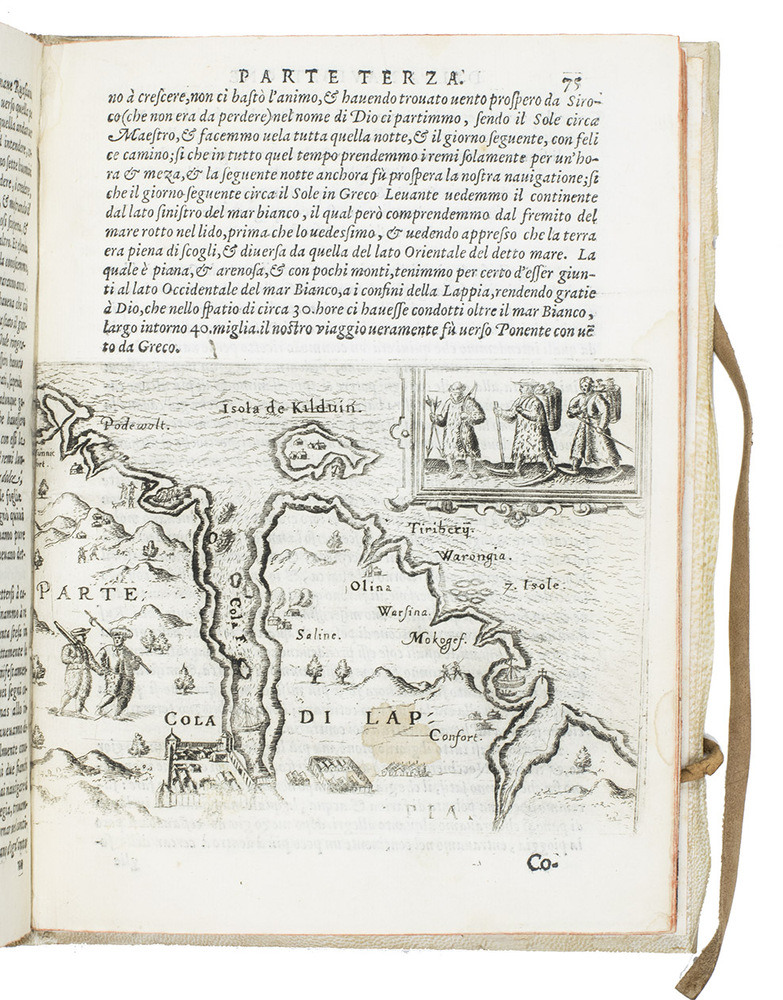 PARTE TERZA.
75
no à crescere, non ci bastò l'animo, & havendo trovato uento prospero da Siro-
co (che non era da perdere) nel nome di Dio ci partimmo, sendo il Sole circa
Maestro, & facemmo uela tutta quella notte, & il giorno seguente, con feli
ce camino; si che in tutto quel tempo prendemmo i remi solamente per un'ho-
ra & meza, & la seguente notte anchora fù prospera la nostra nauigatione; si
che il giorno seguente circa il Sole in Greco Leuante uedemmo il continente
dal lato sinistro del mar bianco, il qual però comprendemmo dal fremito del
mare rotto nel lido, prima che lo uedessimo, & uedendo appresso che la terra
era piena di scogli, & diuersa da quella del lato Orientale del detto mare. La
quale è piana, & arenosa, & con pochi monti, tenimmo per certo d'esser giun-
ti al lato Occidentale del mar Bianco, a i confini della Lappia, rendendo gratie
à Dio, che nello spatio di circa 30. hore ci hauesse condotti oltre il mar Bianco,
largo intorno 40. miglia. il nostro viaggio ueramente fù uerso Ponente con uē
to da Greco.
Isola de Kilduin.
Podewolt.
Tiribery.
Warongia.
7. Isole.
Olina
Warsina.
Mokogef.
Saline.
Cola f.
PARTE
COLA
DI LAP
Confort.
PIA.
Co-